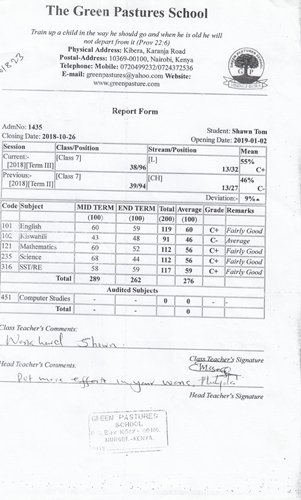 The Green Pastures School
Train up a child in the way he should go and when he is old he will
not depart from it (Prov 22:6)
Physical Address: Kibera, Karanja Road
Postal-Address: 10369-00100, Nairobi, Kenya
Telephone: Mobile: 0720499232/0724372536
E-mail: greenpastures@yahoo.com Website:
www.greenpasture.com
Report Form
AdmNo: 1435 Student: Shawn Tom
Closing Date: 2018-10-26 Opening Date: 2019-01-02
Session Class/Position Stream/Position Mean
Current:- [Class 7] [L] 55%
[2018][Term III] 38/96 13/32 C+
Previous:- [Class 7] [CH] 46%
[2018][Term II] 39/94 13/27 C-
Deviation:- 9%
Code Subject MID TERM END TERM Total Average Grade Remarks
(100) (100) (200) (100)
101 English 60 59 119 60 C+ Fairly Good
102 Kiswahili 43 48 91 46 C- Average
121 Mathematics 60 52 112 56 C+ Fairly Good
235 Science 68 44 112 56 C+ Fairly Good
316 SST/RE 58 59 117 59 C+ Fairly Good
Total 289 262 276
Audited Subjects
451 Computer Studies - - 0 0 - -
Total 0
Class Teacher's Comments:
Work hard Shawn.
Class Teacher's Signature
Head Teacher's Comments:
Put more effort in your work.
Head Teacher's Signature
GREEN PASTURES
SCHOOL
NAIROBI-KENYA